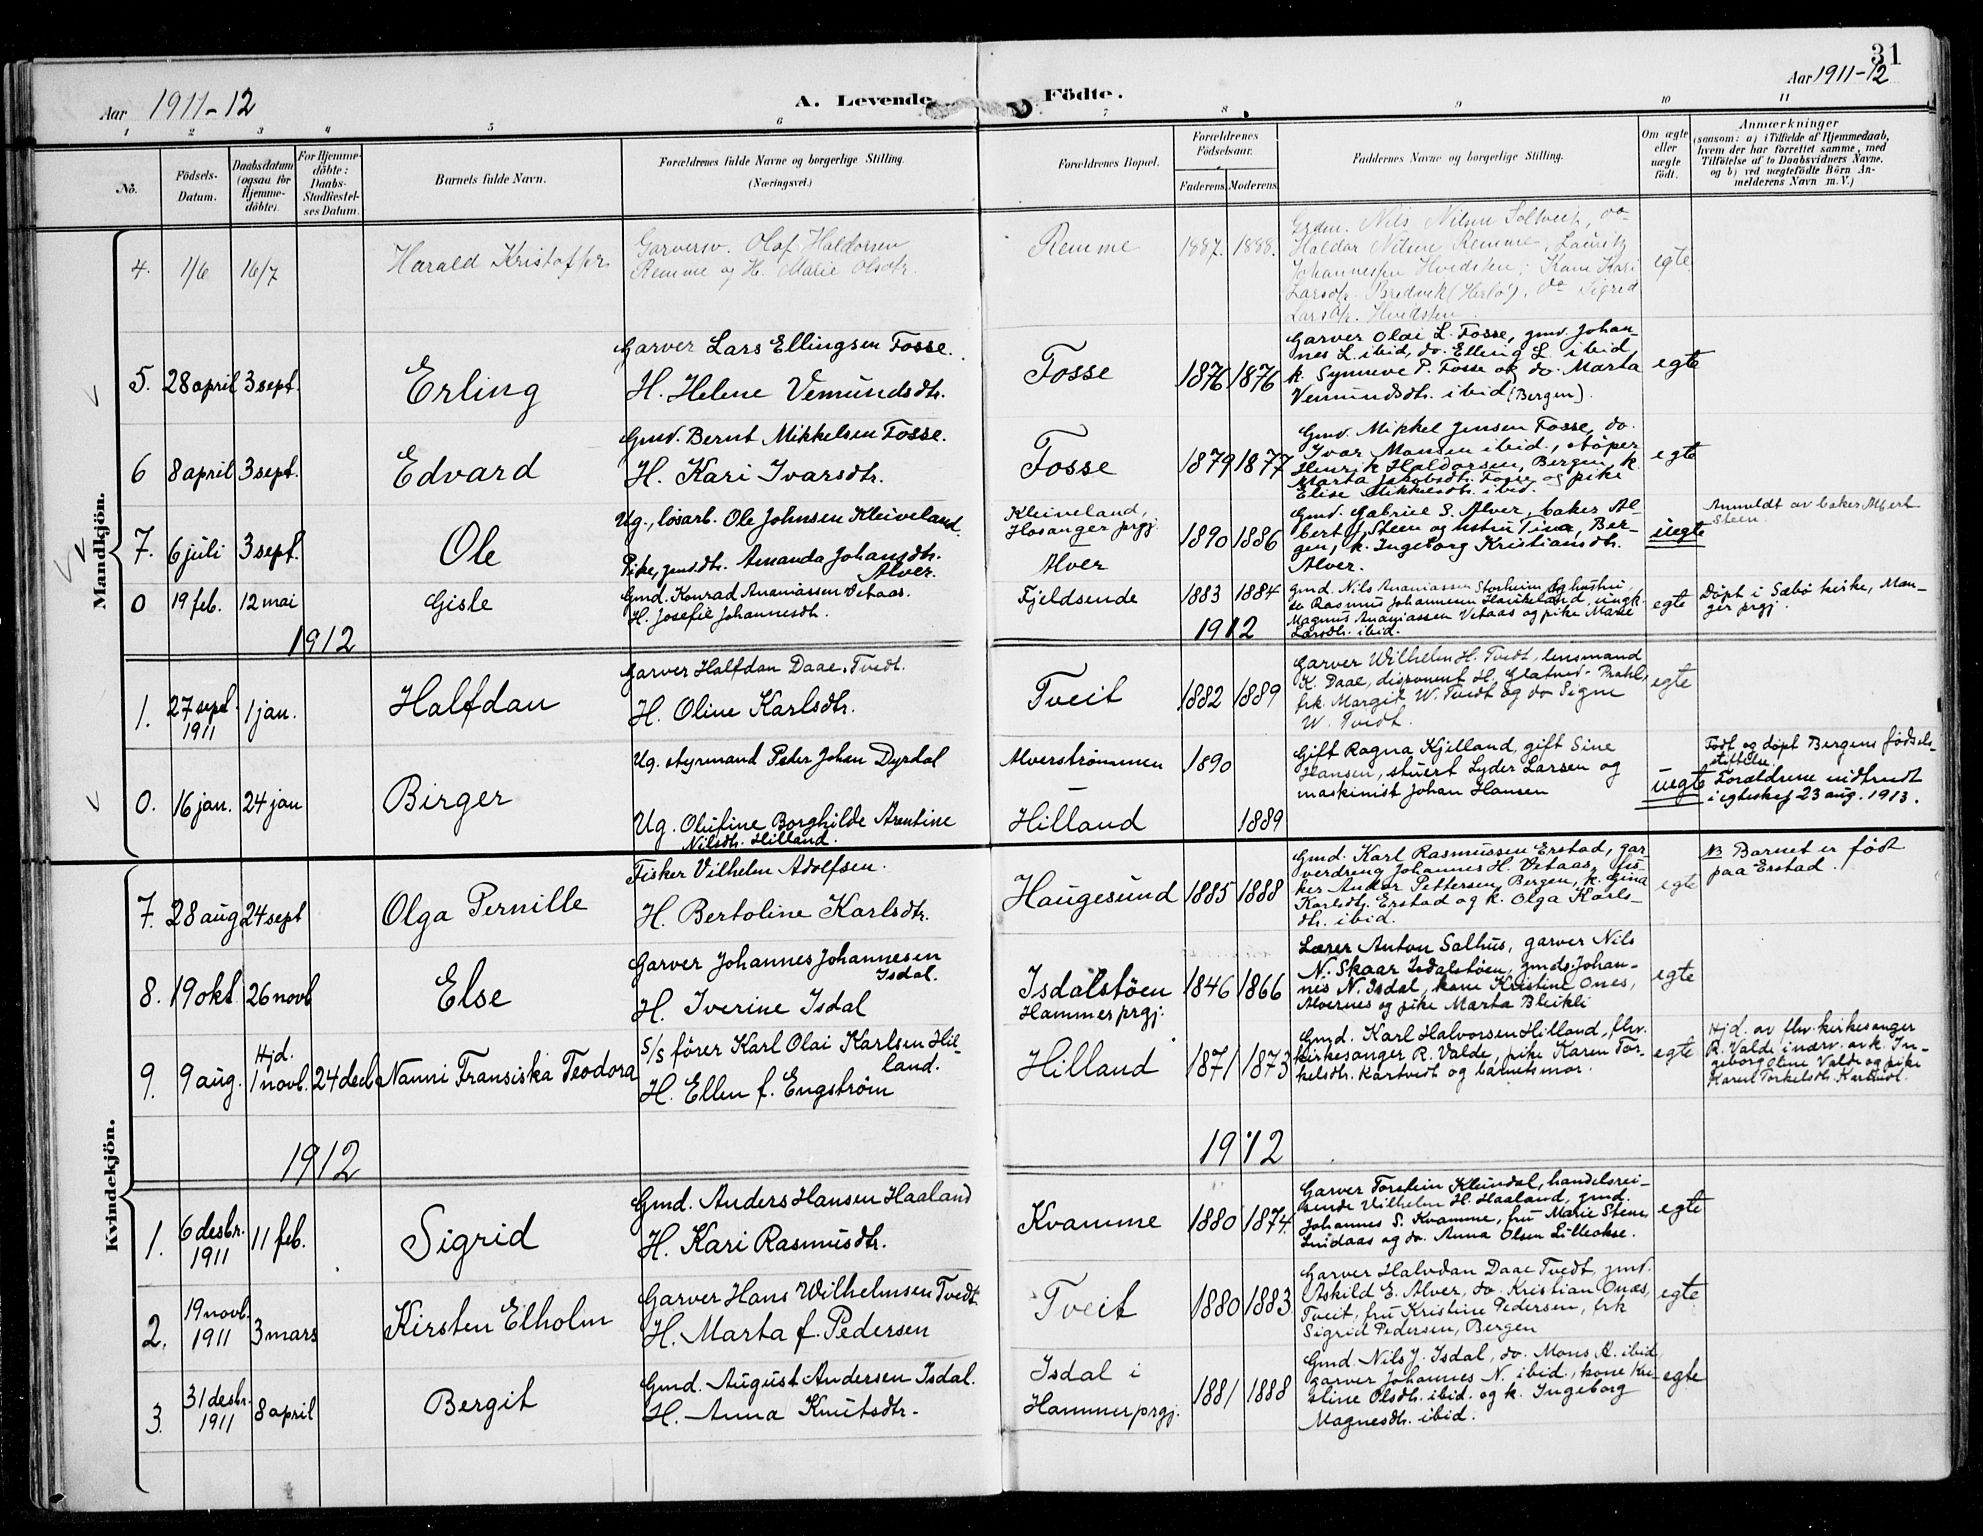 31
Aar 1911-12
A. Levende Födte.
Aar 1911-12
1 2 3 4 5 6 7 8 9 10 11
No.
Födsels-Datum.
Daabsdatum (ogsaa for Hjemme-döbte).
For Hjemme-döbte: Daabs-Stadfæstel-ses Datum.
Barnets fulde Navn.
Forældrenes fulde Navne og borgerlige Stilling. (Næringsvei.)
Forældrenes Bopæl.
Forældrenes Födselsaar.
Faderens. Moderens.
Faddernes Navne og borgerlige Stilling.
Om ægte eller uægte födt.
Anmærkninger
(saasom: a) i Tilfælde af Hjemmedaab,
hvem der har forrettet samme, med
Tilföielse af to Daabsvidners Navne,
og b) ved uægtefödte Börn An-
melderens Navn m. V.)
Mandkjön.
4. 1/6 16/7
Harald Kristoffer
Garversv. Olaf Haldorsen
Remme og H. Malie Olsdtr.
Remme
1887. 1888.
Nils Nilsen Soltveit, do
Haldor Nilsen Remme, Lauritz
Johannessen Hvidsten; Kone Kari
Larsdtr. Bredvik (Herlø), do Sigrid
Larsdtr. Hvidsten.
egte
5. 28 april 3 sept.
Erling
Garver Lars Ellingsen Fosse.
H. Helene Vemundsdtr.
Fosse
1876 1876
Garver Olai L. Fosse, gmd. Johan-
nes L. ibid, do. Elling L. ibid
k. Synneve P. Fosse og do. Marta
Vemundsdtr. ibid (Bergen).
egte
6 8 april 3 sept.
Edvard
Gmd. Bernt Mikkelsen Fosse.
H. Kari Ivarsdtr.
Fosse
1879 1877
Gmd. Mikkel Jensen Fosse, do.
Ivar Monsen ibid., støper
Henrik Haldorsen, Bergen, k.
Marta Jakobsdtr. Fosse og pike
Elise Mikkelsdtr. ibid.
egte
7. 6 juli 3 sept.
Ole
Ug., løsarb. Ole Johnsen Kleiveland.
Pike, gmd.dtr. Amanda Johansdtr.
Alver.
Kleiveland,
Hosanger prgj.
Alver
1890 1886
Gmd. Gabriel S. Alver, baker Al-
bert J. Steen og hstru Tina, Ber-
gen, k. Ingeborg Kristiansdtr.
Alver.
uegte
Anmeldt av baker Albert
Steen.
0 19 feb. 12 mai
Gisle
Gmd. Konrad Ananiassen Vetaas.
H. Josefie Johannesdtr.
Fjeldsende
1883 1884
Gmd. Nils Ananiassen Storheim og hustru,
do Rasmus Johannesen Haukeland, ungk.
Magnus Ananiassen Vetaas og pike Marie
Larsdtr. ibid.
egte
Døpt i Sæbø kirke, Man-
ger prgj.
1912
1912
1. 27 sept. 1911 1 jan.
Halfdan
Garver Halfdan Daae Tvedt.
H. Oline Karlsdtr.
Tveit
1882 1889
Garver Wilhelm H. Tvedt, lensmand
K. Daae, disponent H. Glatved-Prahl,
frk Margit W. Tvedt og do Signe
W. Tvedt.
egte
0. 16 jan. 24 jan
Birger
Ug. styrmand Peder Johan Dyrdal
Ug. Olufine Borghilde Arentine
Nilsdtr. Hilland.
Alverstrømmen
Hilland
1890
1889
Gift Ragna Kjelland, gift Sine
Hansen, stuert Lyder Larsen og
maskinist Johan Hansen
uegte
Født og døpt Bergens fødsels-
stiftelse.
Forældrene indtraadt
i egteskap 23 aug. 1913.
Kvindekjön.
7. 28 aug 24 sept
Olga Pernille
Fisker Vilhelm Adolfsen.
H. Bertoline Karlsdtr.
Haugesund
1885 1888
Gmd. Karl Rasmussen Erstad, gar-
verdreng Johannes H. Vetaas, fis-
ker Andor Pettersen, Bergen, k. Gina
Karlsdtr. Erstad og k. Olga Karls-
dtr. ibid.
egte
NB Barnet er født
paa Erstad.
8. 19 okt. 26 novb
Else
Garver Johannes Johannesen
Isdal.
H. Iverine Isdal
Isdalstøen
Hammer prgj.
1846 1866
Lærer Anton Salhus, garver Nils
N. Skaar Isdalstøen, gmds. Johan-
nis N. Isdal, kone Kristine Ones,
Alvernes og pike Marta Bleikli
egte
9. 9 aug. Hjd. 1 novb. 24 decb
Nanni Fransiska Teodora
S/S fører Karl Olai Karlsen Hil-
land.
H. Ellen f. Engstrøm
Hilland
1871 1873
Gmd. Karl Halvorsen Hilland, fhv.
kirkesanger R. Valde, pike Karen Tor-
kelsdtr. Kartvedt og barnets mor.
egte
Hjd. av fhv. kirkesanger
R. Valde i nærv. av k. In-
geborg Oline Valde og pike
Karen Torkelsdtr. Kartvedt.
1912
1912
1. 6 desbr. 1911 11 feb.
Sigrid
Gmd. Anders Hansen Haaland
H. Kari Rasmusdtr.
Kvamme
1880 1874.
Garver Torstein Kleindal, handelsrei-
sende Vilhelm H. Haaland, gmd.
Johannes S. Kvamme, fru Marie Stene
Lindaas og do. Anna Olsen Lilleokse.
egte
2. 19 novb. 1911 3 mars
Kirsten Elholm
Garver Hans Wilhelmsen Tvedt
H. Marta f. Pedersen
Tveit
1880 1883
Garver Halvdan Daae Tvedt, gmd.
Askild E. Alver, do. Kristian Onæs,
Tveit, fru Kristine Pedersen, frk
Sigrid Pedersen, Bergen
egte
3. 31 desbr. 1911 8 april
Bergit
Gmd. August Andersen Isdal.
H. Anna Knutsdtr.
Isdal i
Hammer prgj.
1881 1888
Gmd. Nils J. Isdal, do. Mons A. ibid,
garver Johannes N. ibid, kone Kri-
stine Olsdtr. ibid. og k. Ingeborg
Magnesdtr. ibid.
egte